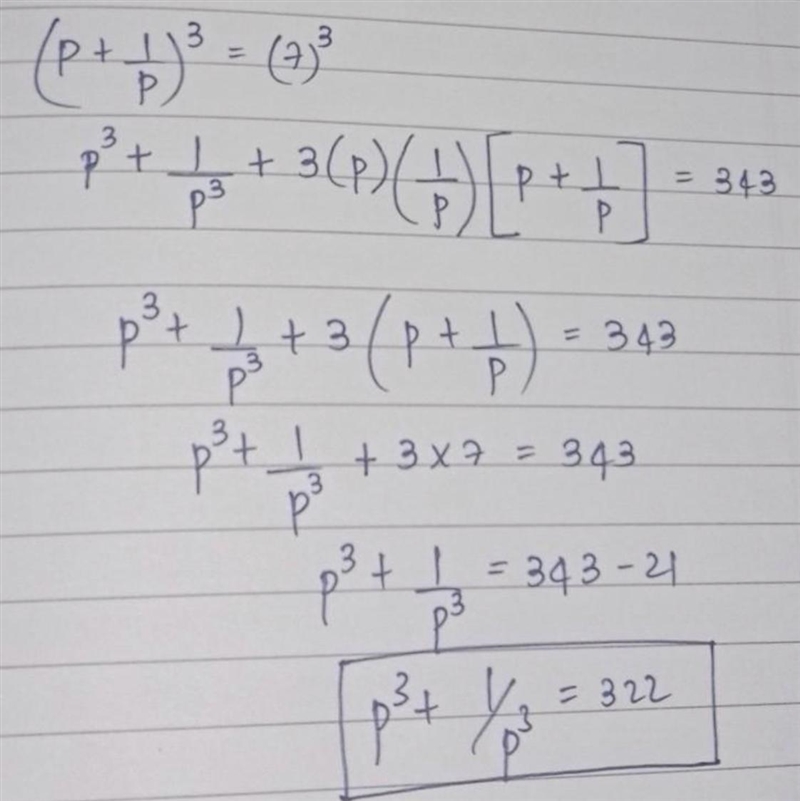 (p + 1/p)³ = (7)³
p³ + 1/p³ + 3(p)(1/p)[p + 1/p] = 343
p³ + 1/p³ + 3(p + 1/p) = 343
p³ + 1/p³ + 3 × 7 = 343
p³ + 1/p³ = 343 - 21
p³ + 1/p³ = 322